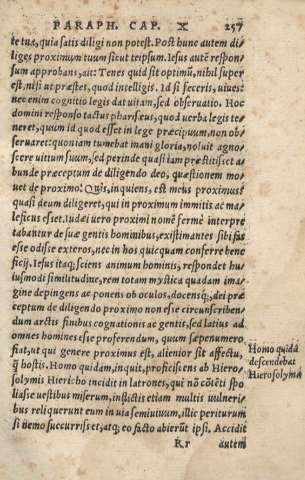 PARAPH. CAP. X 257
te tua, quia satis diligi non potest. Post hunc autem di
liges proximum tuum sicut teipsum. Iesus autē respon
sum approbans, ait: Tenes quid sit optimū, nihil super
est, nisi ut præstes, quod intelligis. Id si feceris, uiues:
nec enim cognitio legis dat uitam, sed obseruatio. Hoc
domini responso tactus phariseus, quod uerba legis te-
neret, quum id quod esset in lege præcipuum, non ob-
seruaret: quoniam tumebat inani gloria, noluit agno-
scere uitium suum, sed perinde quasi iam præstitisset a-
bunde præceptum de diligendo deo, quæstionem mo-
uet de proximo: Quis, inquiens, est meus proximus?
quasi deum diligeret, qui in proximum immitis ac ma-
leficus esset. Iudæi uero proximi nomē fermè interpre
tabantur de suæ gentis hominibus, existimantes sibi fas
esse odisse exteros, nec in hos quicquam conferre bene
ficij. Iesus itaq; sciens animum hominis, respondet hu
iusmodi similitudine, rem totam mystica quadam ima
gine depingens ac ponens ob oculos, docensq;, dei præ
ceptum de diligendo proximo non esse circunscriben-
dum arctis finibus cognationis ac gentis, sed latius ad
omnes homines esse proferendum, quum sæpenumero
fiat, ut qui genere proximus est, alienior sit affectu,
q̃ hostis. Homo quidam, inquit, proficiscens ab Hiero-
solymis Hiericho incidit in latrones, qui nō cōtēti spo
liasse uestibus miserum, iniectis etiam multis uulneri-
bus reliquerunt eum in uia semiuiuum, illic periturum
si nemo succurrisset, atq; eo facto abierūt ipsi. Accidit
Rr autem
Homo quidā
descendebat
Hierosolyma